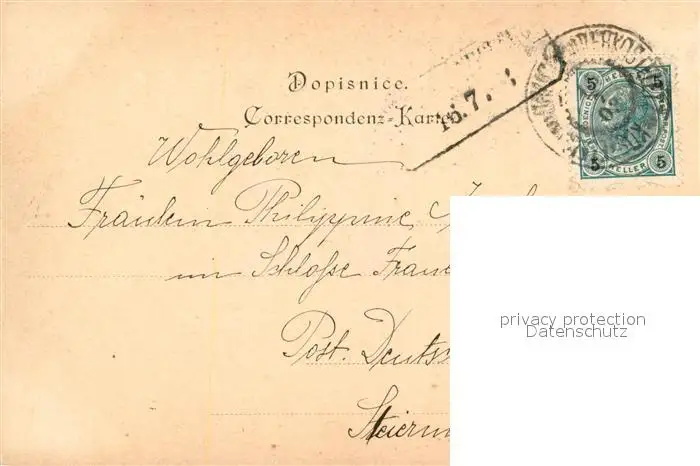 Dopisnice.
Correspondenz-Karte
16.7.
5 5
5 HELLER 5
Wohlgeboren
Fräulein Philippine
im Schloße Frau
Post. Deuts
Steierm
privacy protection
Datenschutz